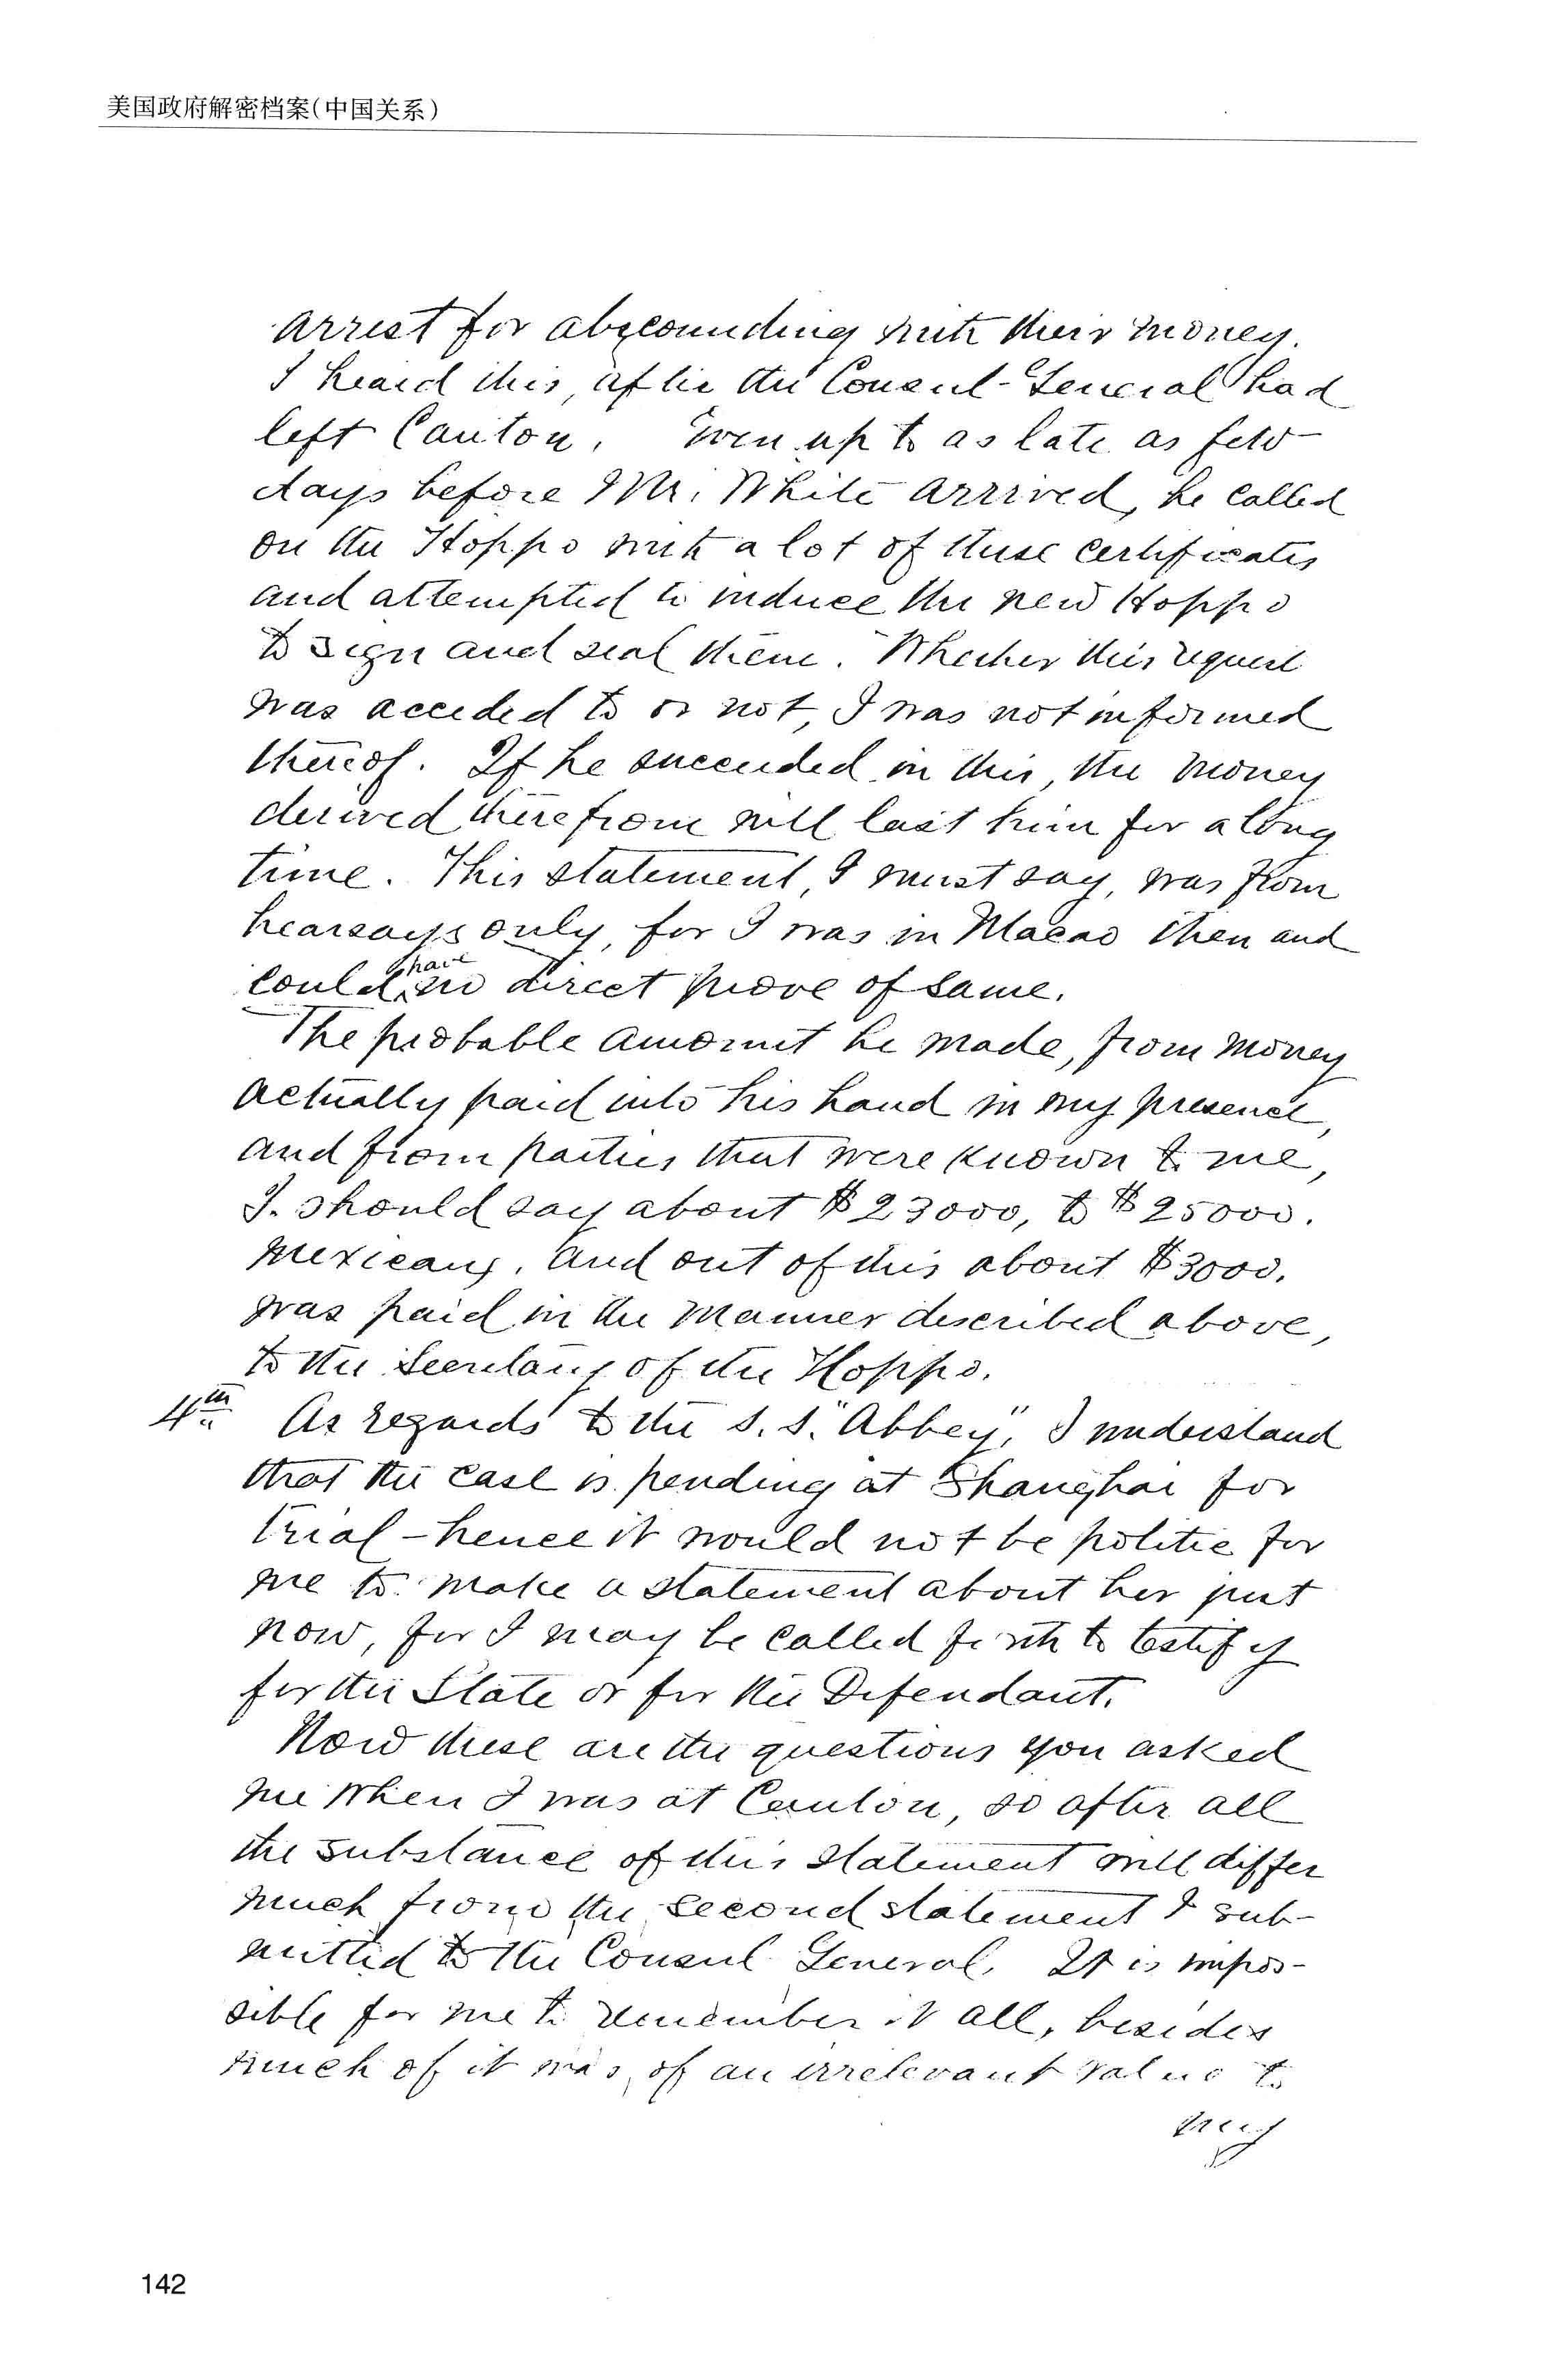 美国政府解密档案(中国关系)
arrest for absconding with their money.
I heard this, after the Consul-General had
left Canton. Even up to as late as few
days before Mr. White arrived, he called
on the Hoppo with a lot of these certificates
and attempted to induce the new Hoppo
to sign and seal them. Whether this request
was acceded to or not, I was not informed
thereof. If he succeeded in this, the money
derived therefrom will last him for a long
time. This statement, I must say, was from
hearsays only, for I was in Macao then and
could have no direct prove of same.
The probable amount he made, from money
actually paid into his hand in my presence,
and from parties that were known to me,
I should say about $23000, to $25000.
Mexicans, and out of this about $3000.
was paid in the manner described above,
to the Secretary of the Hoppo.
4th As regards to the S.S. "Abbey", I understand
that the case is pending at Shanghai for
trial - hence it would not be politic for
me to make a statement about her just
now, for I may be called forth to testify
for the State or for the Defendant.
Now these are the questions you asked
me when I was at Canton, so after all
the substance of this statement will differ
much from the second statement I sub-
mitted to the Consul General. It is impos-
sible for me to remember it all, besides
much of it was of an irrelevant value to
my
142